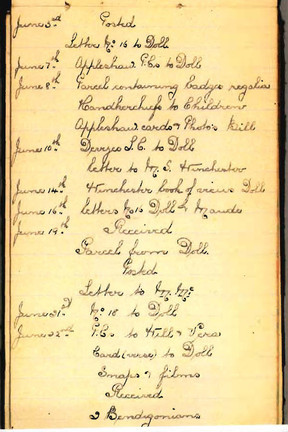 June 3rd Posted
Letter No 16 to Doll
June 7th Appleshaw P.Cs to Doll
June 8th Parcel containing badges regalias
Handkerchiefs to Children
Appleshaw cards & Photo's Bill
June 10th Devizes L.C. to Doll
Letter to M. S. Winchester
June 14th Winchester book of views Doll
June 16th Letters No 15 Doll & Maude
June 19th Received
Parcel from Doll.
Posted
Letter to M. Mc
June 21st No 18 to Doll
June 22nd P.Cs to Will & Vera
Card (verse) to Doll
Snaps & films
Received
2 Bendigonians